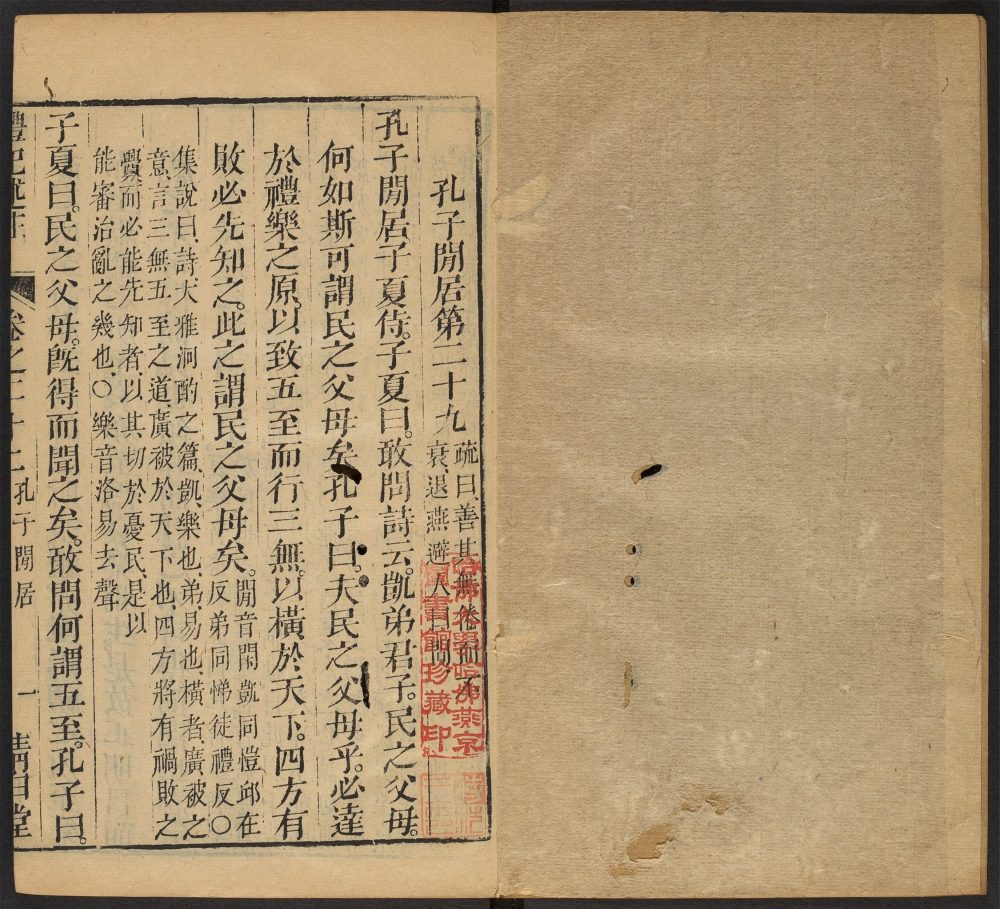 孔子閒居第二十九
疏曰善其無倦而不
衰退燕避人曰閒
孔子閒居子夏侍子夏曰敢問詩云凱弟君子民之父母
何如斯可謂民之父母矣孔子曰夫民之父母乎必達
於禮樂之原以致五至而行三無以橫於天下四方有
敗必先知之此之謂民之父母矣
閒音閑凱同愷邱在
反弟同悌徒禮反○
集說曰詩大雅泂酌之篇凱樂也弟易也橫者廣被之
意言三無五至之道廣被於天下也四方將有禍敗之
釁而必能先知者以其切於憂民是以
能審治亂之幾也○樂音洛易去聲
子夏曰民之父母既得而聞之矣敢問何謂五至孔子曰
禮記述註 卷之二十二 孔子閒居 一 清白堂
哈佛大學哈佛燕京
圖書館珍藏印